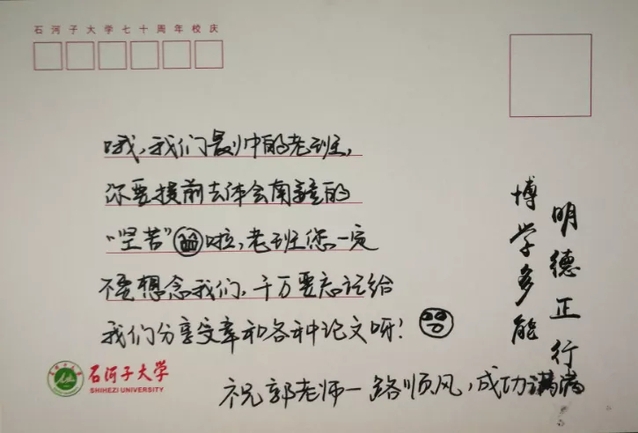 石河子大学七十周年校庆
哦,我们最帅的老班,
你要提前去体会南疆的
"坚苦"啦,老班您一定
不要想念我们,千万要忘记给
我们分享文章和各种论文呀!
明德正行
博学多能
石河子大学
SHIHEZI UNIVERSITY
祝郭老师一路顺风,成功满满